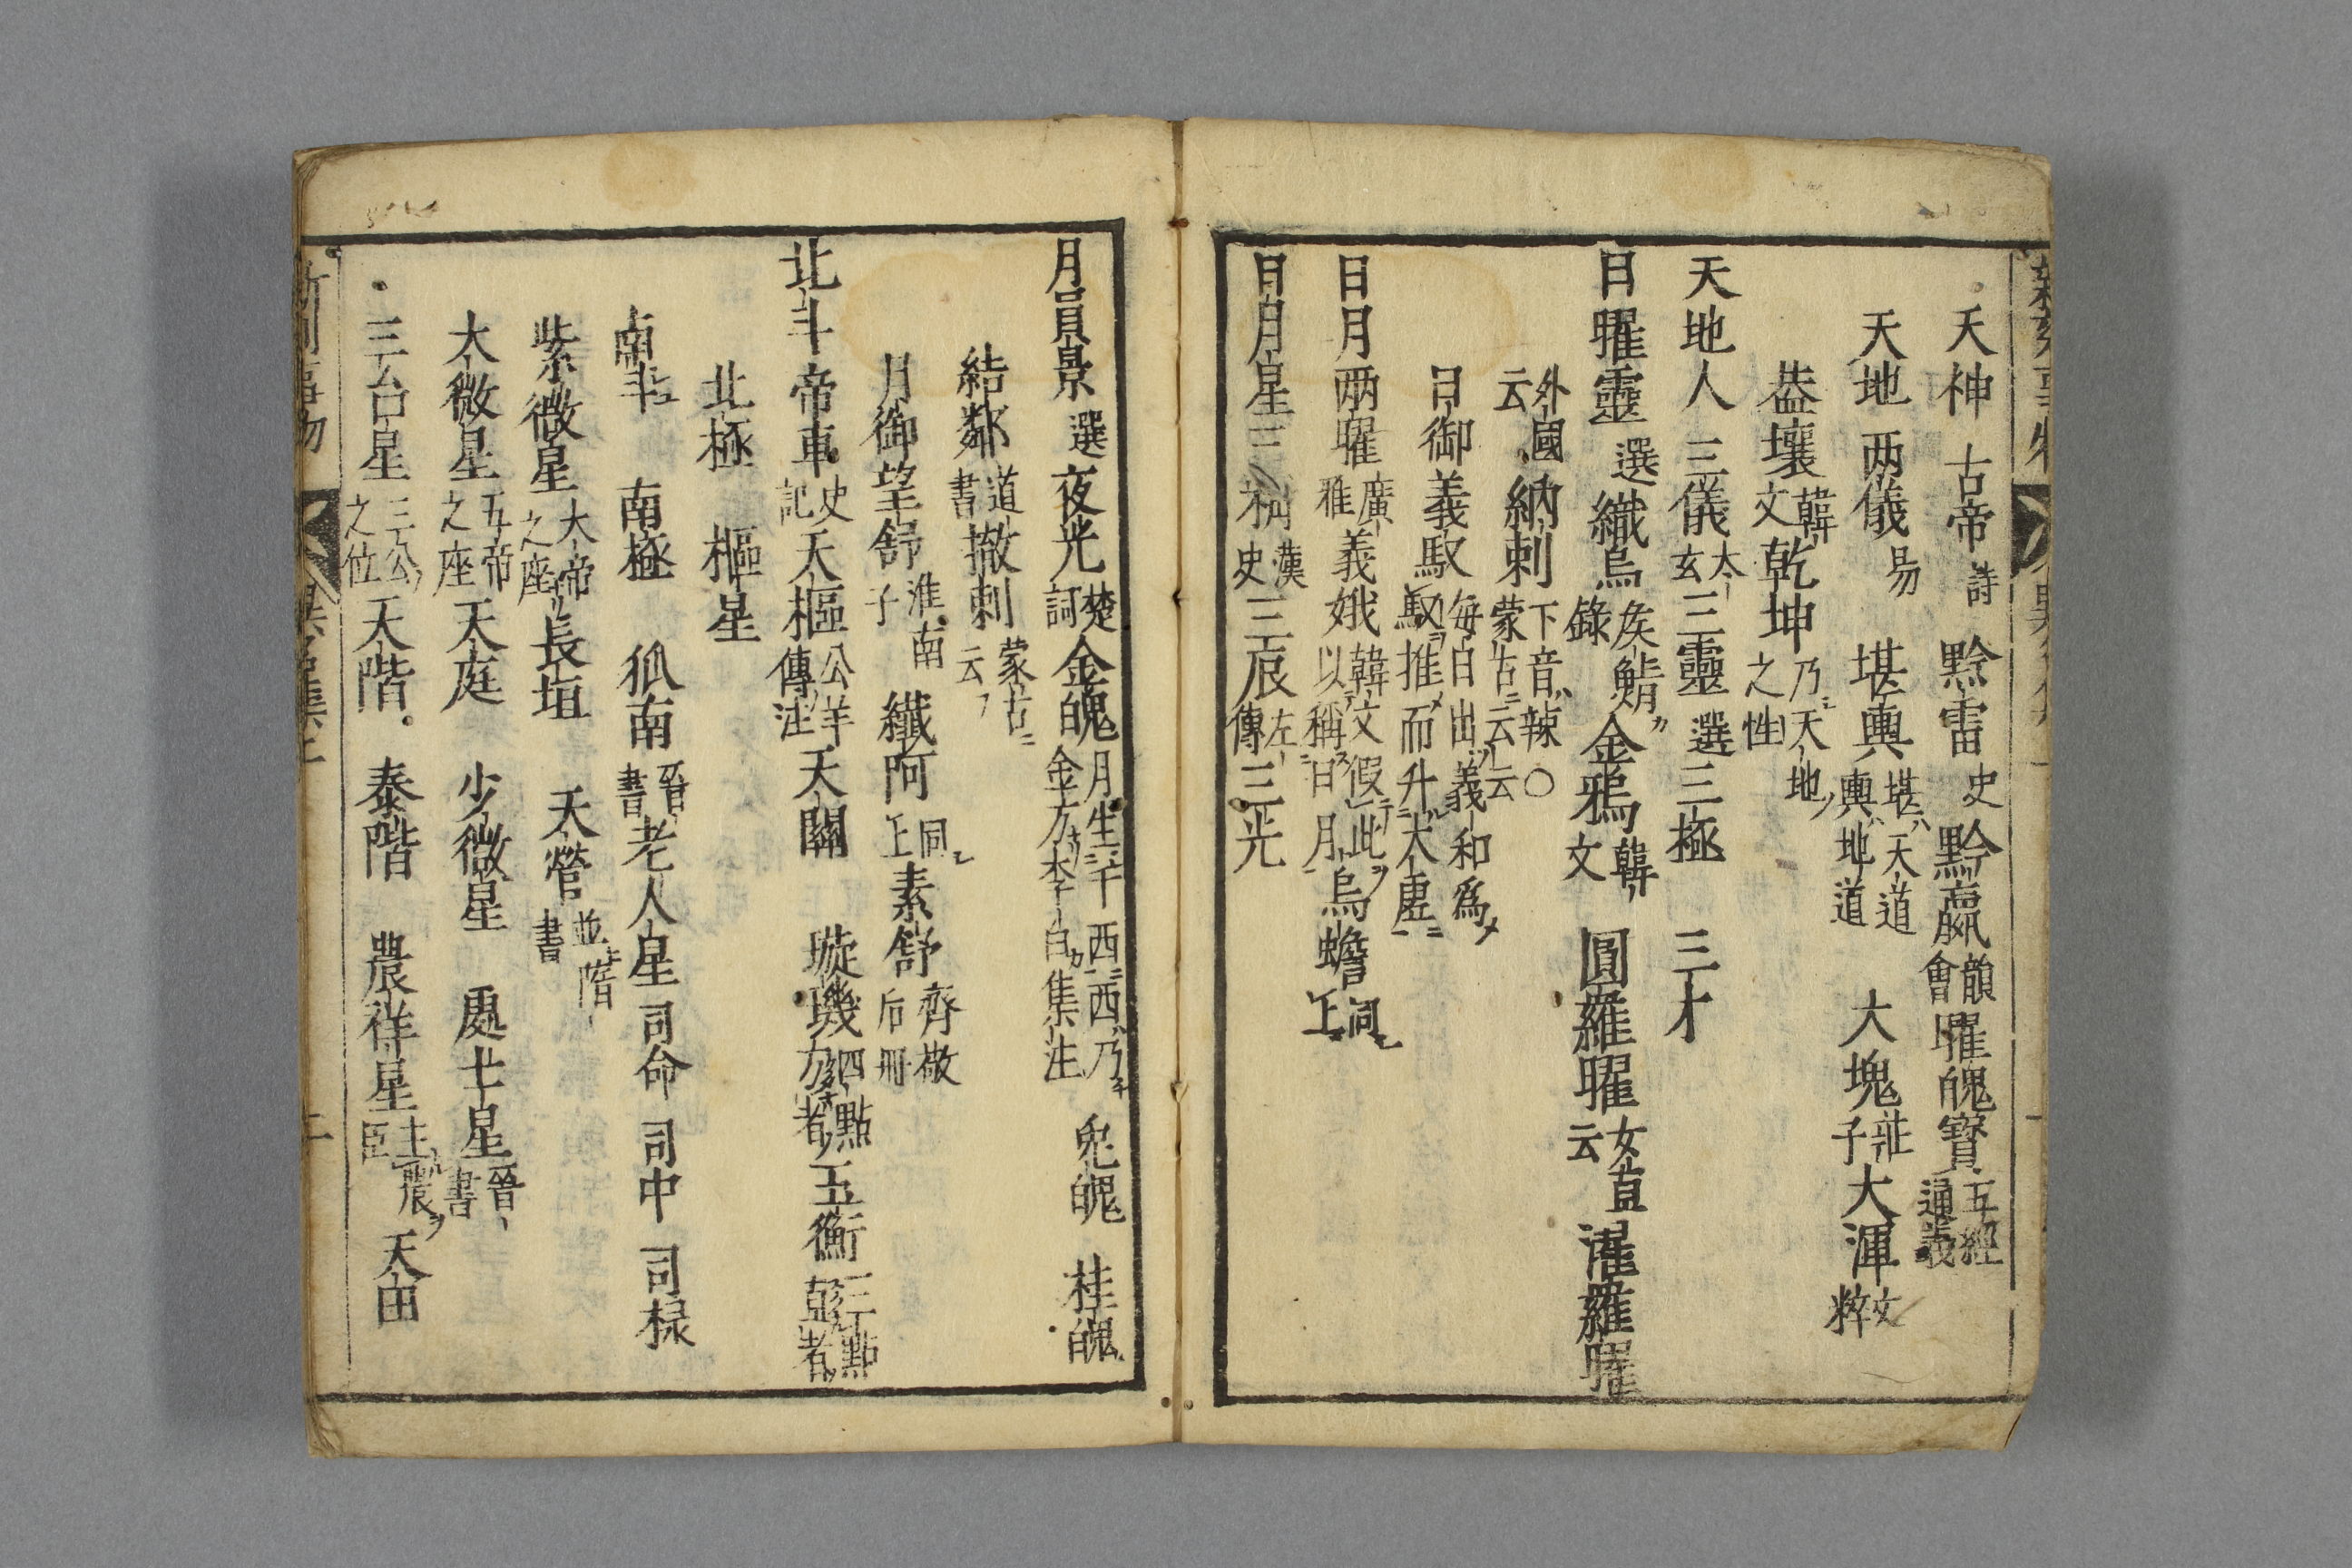 天神 古帝 詩 黔雷 史 黔嬴 韻會 曜魄寳 五經通義
天地 两儀 易 堪輿 堪ハ天道輿ハ地道 大塊 莊子 大渾 文粹
盎壤 韓文 乾坤 乃天地ノ之性
天地人 三儀 太玄 三靈 選 三極 三才
日曜靈 選 織烏 矦鯖録 金鴉 韓文 圓羅曜 女直云 濯羅曜
外國云 納刺 下音辣○蒙古云云
日御 義馭 每日出義和爲馭推而升大虚
日月 两曜 廣雅 義娥 韓文假此以稱日月 烏蟾 同上
日月星 三㸃 漢史 三辰 左傳 三光
月員景 選 夜光 楚詞 金魄 月生于西西乃金方李白集注 兔魄 桂魄
結鄰 道書 撒刺 蒙古云
月御 望舒 淮南子 纎阿 同上 素舒 齊敬后冊
北斗 帝車 史記 天樞 公羊傳注 天關 璇璣 四點方者 玉衡 三點
北極 樞星
南斗 南極 狐南 晉書 老人星 司命 司中 司禄
紫微星 大帝之座 長垣 天營 並階書
大微星 五帝之座 天庭 少微星 處士星 晉書
三台星 三公之位 天階 泰階 農祥星 主農 天田